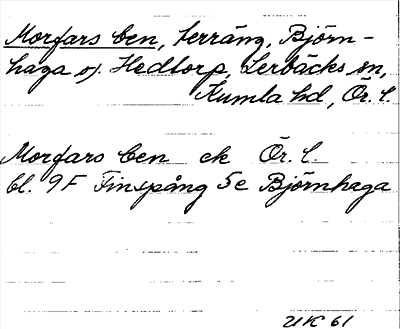 Morfars ben, terräng, Björn-
haga o. Hedtorp, Lerbäcks sn,
Kumla hd, Ör. l.
Morfars ben ek Ör. l.
bl. 9F Finspång 5e Björnhaga
UK 61